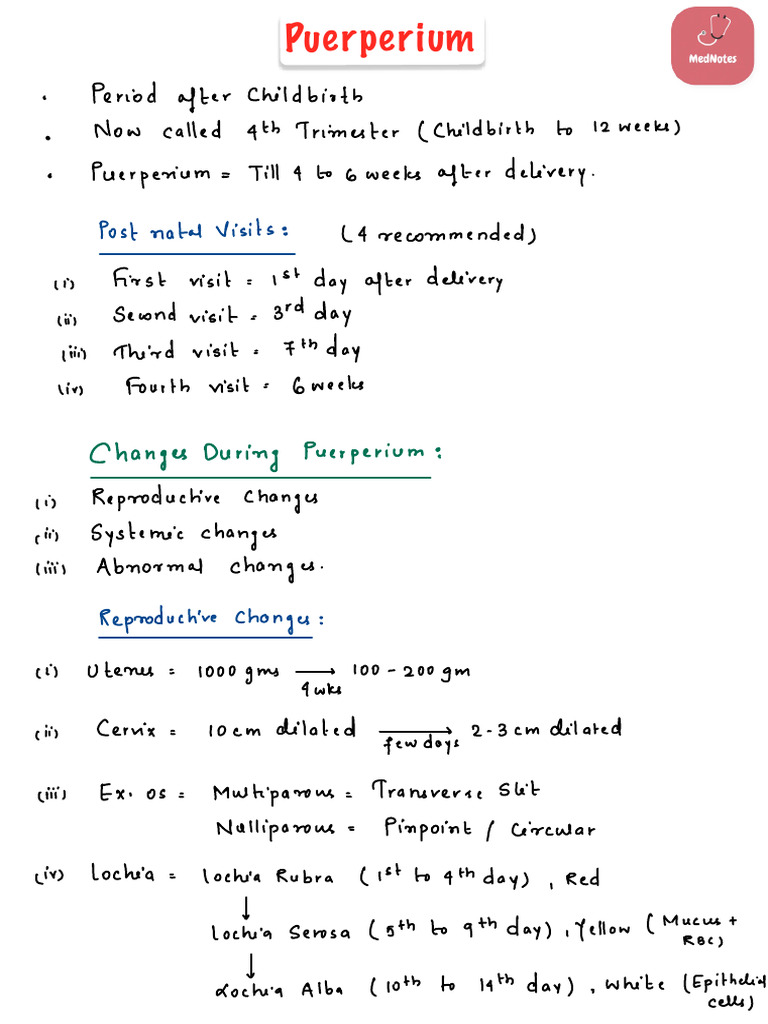 Puerperium
MedNotes
• Period after Childbirth
• Now called 4th Trimester (Childbirth to 12 weeks)
• Puerperium = Till 4 to 6 weeks after delivery.
Post natal Visits: (4 recommended)
(i) First visit = 1st day after delivery
(ii) Second visit = 3rd day
(iii) Third visit = 7th day
(iv) Fourth visit = 6 weeks
Changes During Puerperium:
(i) Reproductive Changes
(ii) Systemic changes
(iii) Abnormal changes.
Reproductive Changes:
(i) Uterus = 1000 gms → 100 - 200 gm
4 wks
(ii) Cervix = 10 cm dilated → 2-3 cm dilated
few days
(iii) Ex. os = Multiparous = Transverse Slit
Nulliparous = Pinpoint / Circular
(iv) Lochia = Lochia Rubra (1st to 4th day), Red
↓
Lochia Serosa (5th to 9th day), Yellow (Mucus + RBC)
↓
Lochia Alba (10th to 14th day), White (Epithelial cells)